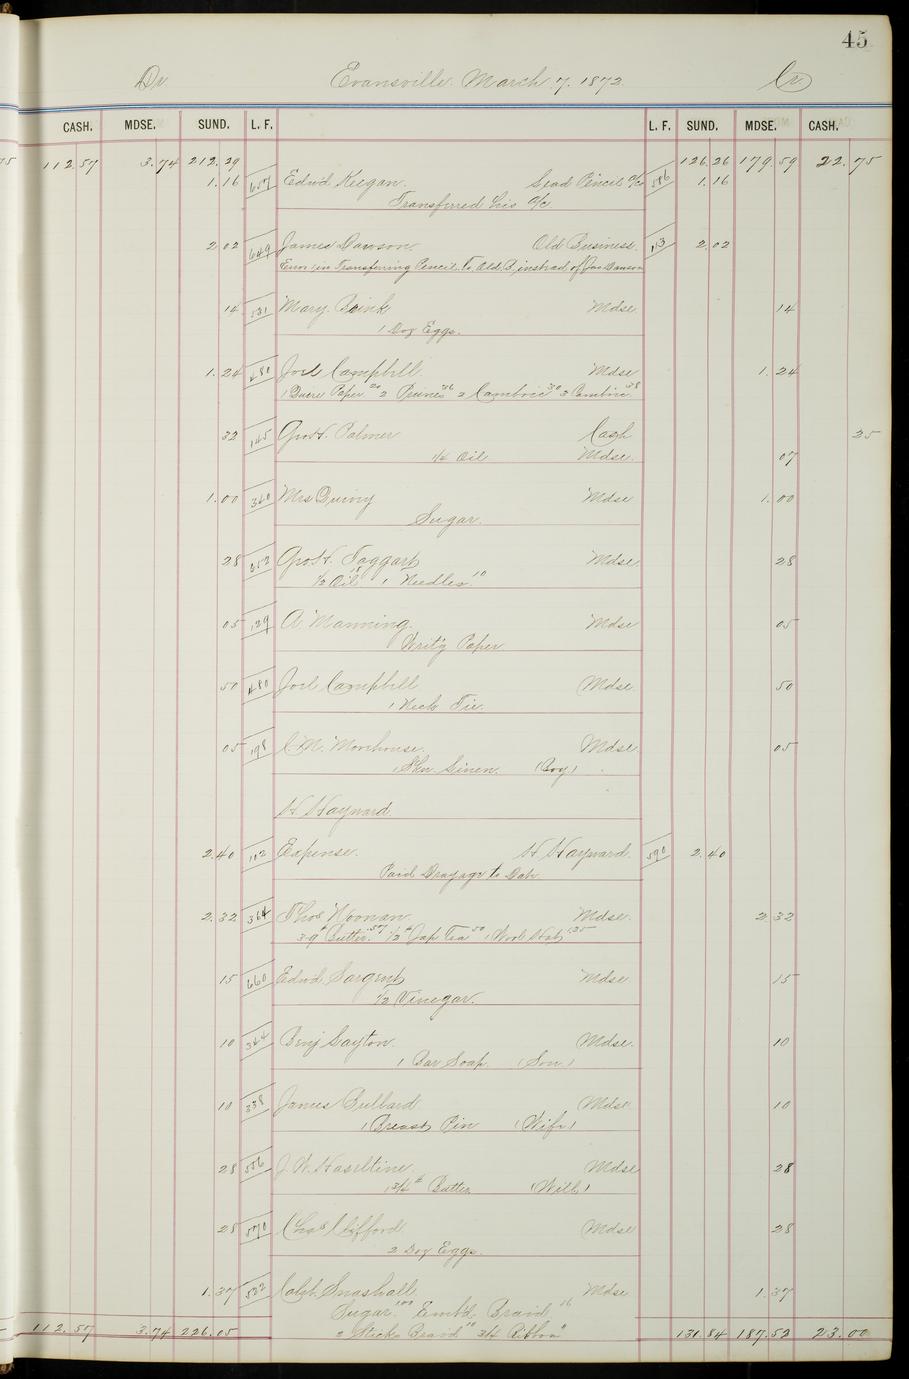 45
Dr Evansville March 7. 1872. Cr
CASH. MDSE. SUND. L. F. L. F. SUND. MDSE. CASH.
112.57 3.74 212.29 126.26 179.59 22.75
1.16 657 Edwd Keegan. Lead Pencil a/c 586 1.16
Transferred his a/c
2.02 649 James Dawson. Old Business. 113 2.02
Error in Transferring Pencil To Old B, instead of Jas Dawson
14 531 Mary Brink Mdse 14
1 Doz Eggs.
1.24 480 Joel Campbell. Mdse 1.24
1 Quire Paper 20 2 Prunes 36 2 Cambric 30 3 Cambric 38
32 145 Geo H. Palmer Cash 25
1/4 Oil Mdse. 07
1.00 360 Mrs Quivey Mdse 1.00
Sugar.
28 652 Geo H. Taggart Mdse 28
1/2 Oil 18 1 Needles 10
05 129 A. Manning. Mdse 05
Writ'g Paper
50 480 Joel Campbell Mdse 50
1 Neck Tie.
05 198 C. M. Morehouse. Mdse 05
1 Skn Linen. (Boy)
H Hayward
2.40 102 Expense. H Hayward. 590 2.40
Paid Drayage to Date
2.32 364 Thos Noonan. Mdse. 2.32
3-9 Butter 57 1/2 # Jap Tea 50 1 Wool Hat 1.25
15 660 Edwd Sargent Mdse 15
1/2 Vinegar.
10 344 Benj Layton. Mdse. 10
1 Bar Soap. (Son)
10 338 James Bullard Mdse 10
1 Breast Pin (Wife)
28 556 J. W. Haseltine. Mdse 28
1 3/4 # Butter (Will)
28 570 Chas Clifford Mdse 28
2 Doz Eggs.
1.37 522 Caleb Snashall Mdse 1.37
Sugar 1.00 Emb'd Braid 16
2 Sticks Braid 10 3/4 Ribbon 11
112.57 3.74 226.05 131.84 187.52 23.00